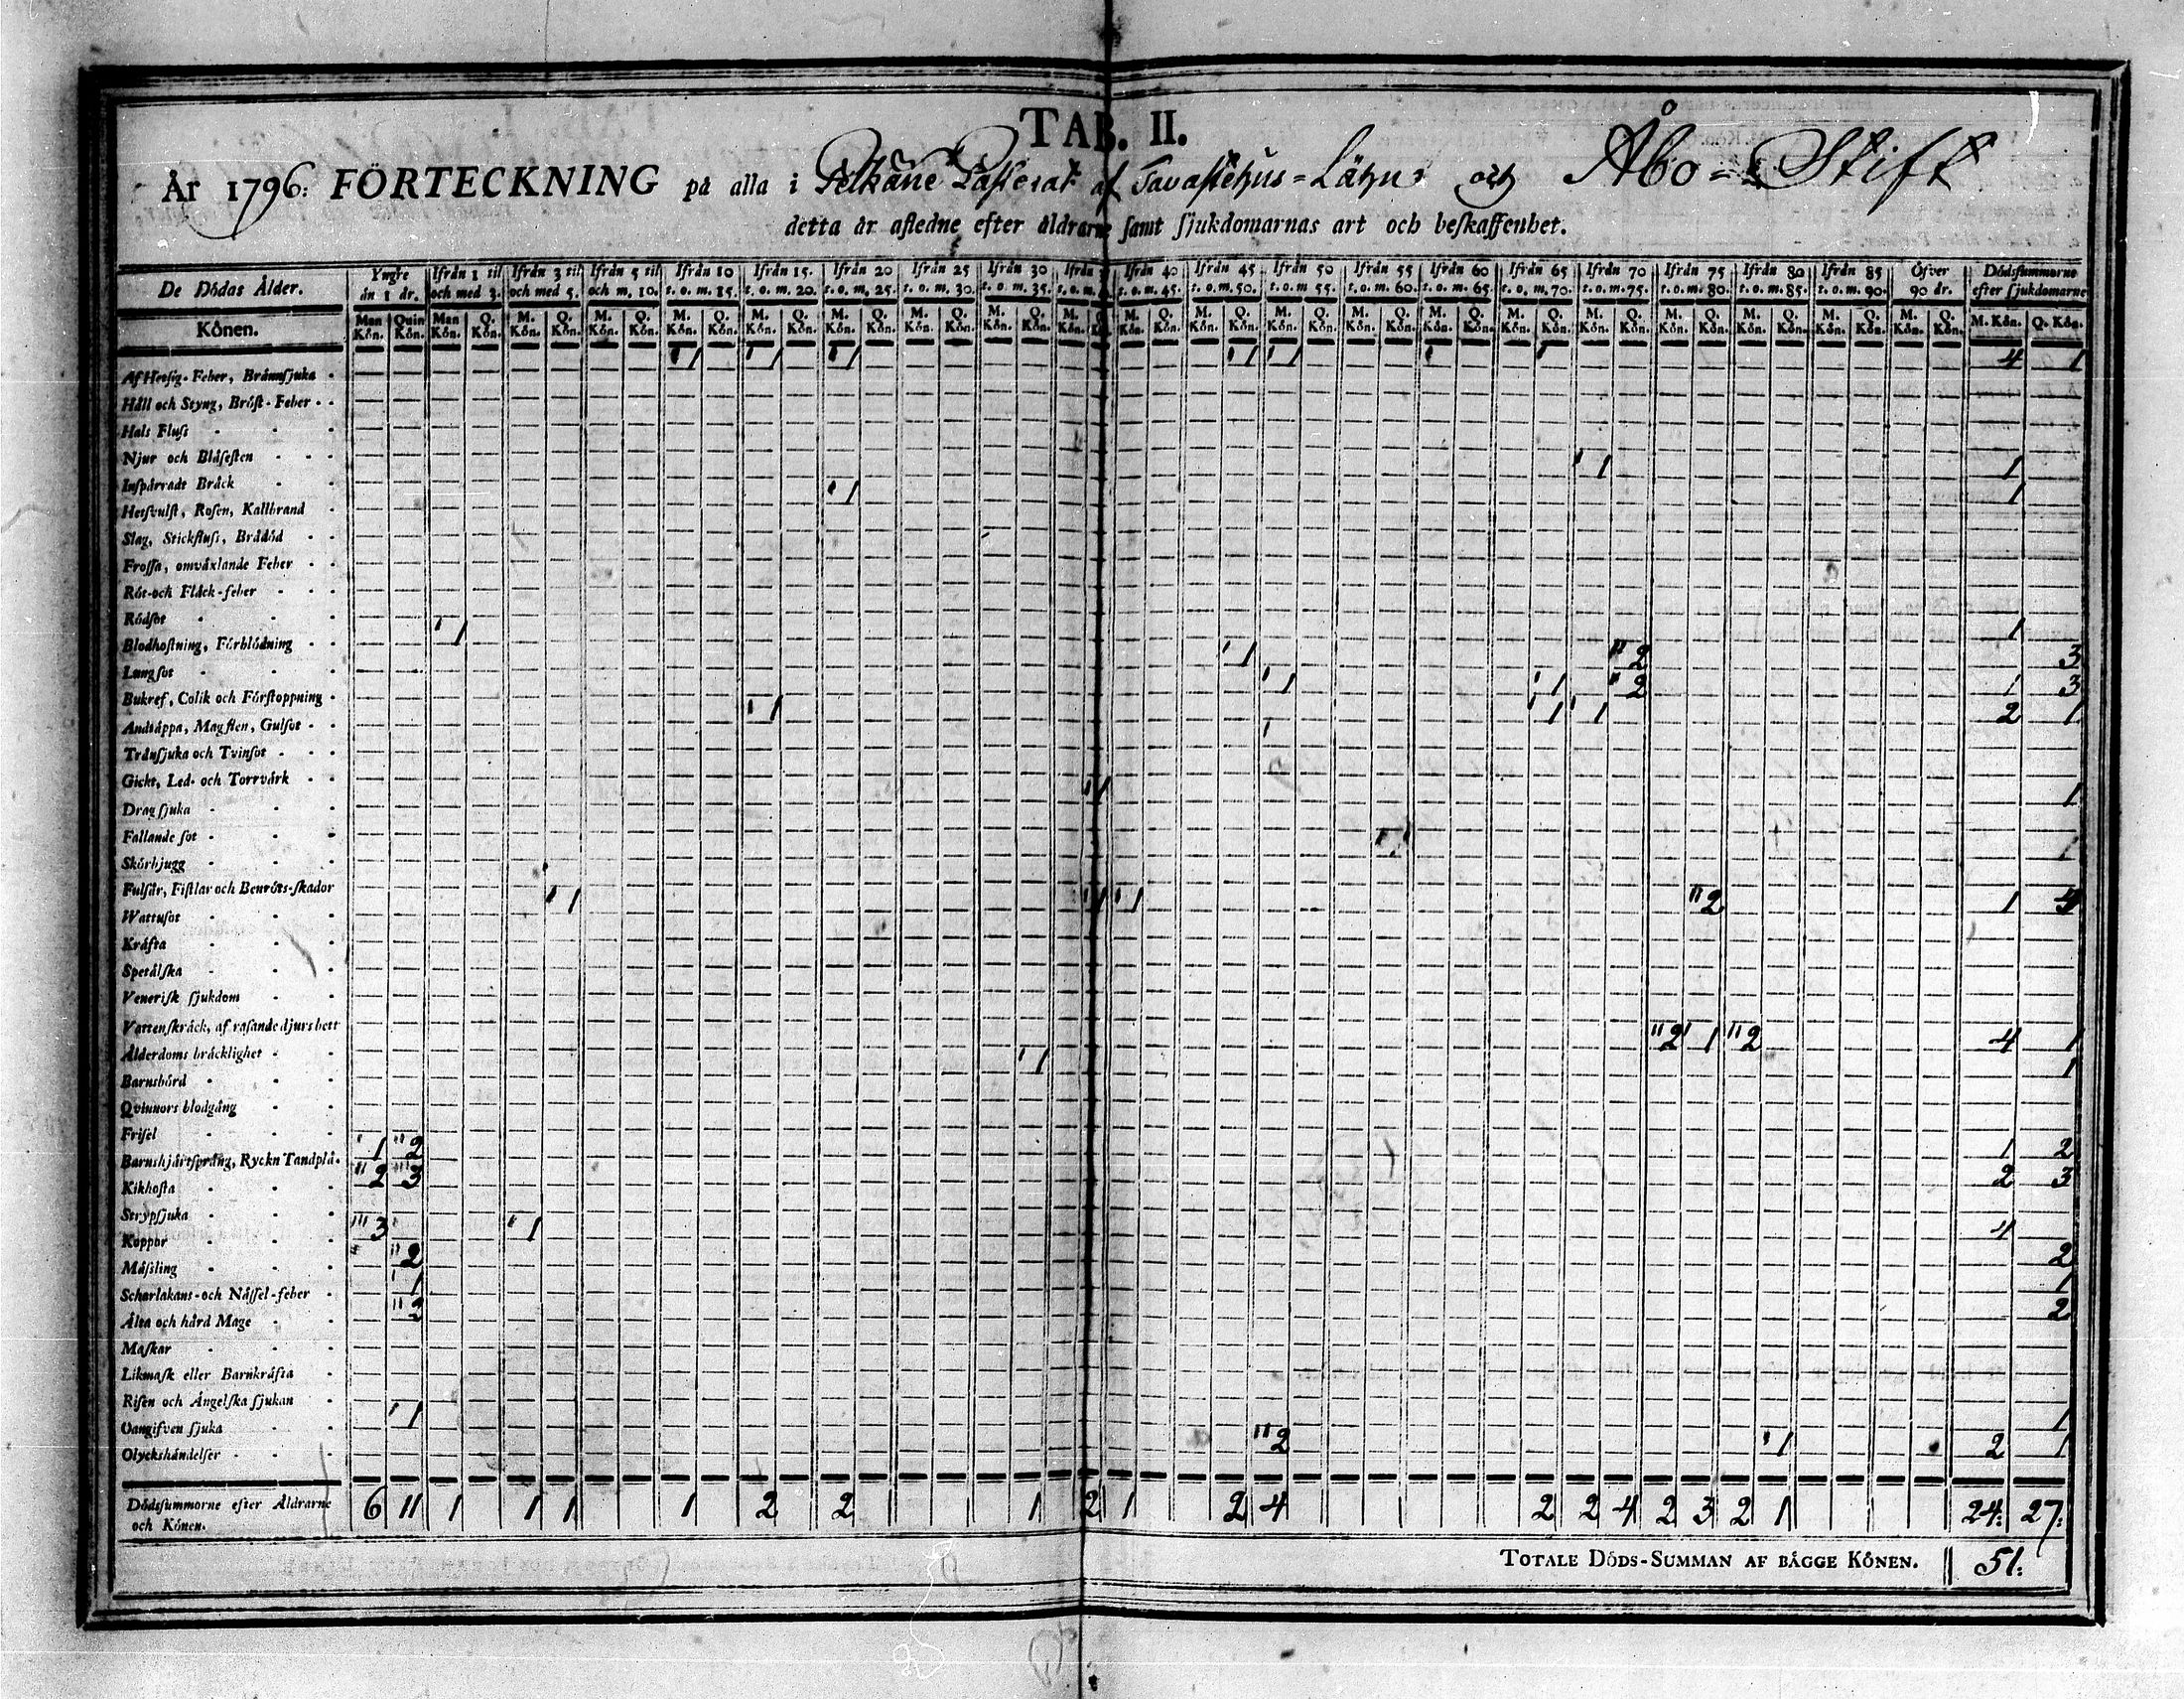 TAB. II.
År 1796: FÖRTECKNING på alla i Pelkäne Pastorat af Tavastehus=Lähn och Åbo=Stift
detta år afledne efter åldrarne samt sjukdomarnas art och beskaffenhet.
De Dödas Ålder. Yngre än 1 år. Ifrån 1 til och med 3. Ifrån 3 til och med 5. Ifrån 5 til och m. 10. Ifrån 10 t. o. m. 15. Ifrån 15. t. o. m. 20. Ifrån 20 t. o. m. 25. Ifrån 25 t. o. m. 30. Ifrån 30 t. o. m. 35. Ifrån t. o. m. Ifrån 40 t. o. m. 45. Ifrån 45 t. o. m. 50. Ifrån 50 t. o. m. 55. Ifrån 55 t. o. m. 60. Ifrån 60 t. o. m. 65. Ifrån 65 t. o. m. 70. Ifrån 70 t. o. m. 75. Ifrån 75 t. o. m. 80. Ifrån 80 t. o. m. 85. Ifrån 85 t. o. m. 90. Öfver 90 år. Dödssummorne efter sjukdomarne
Könen. Man Kön. Quin Kön. Man Kön. Q. Kön. M. Kön. Q. Kön. M. Kön. Q. Kön. M. Kön. Q. Kön. M. Kön. Q. Kön. M. Kön. Q. Kön. M. Kön. Q. Kön. M. Kön. Q. Kön. M. Kön. M. Kön. Q. Kön. M. Kön. Q. Kön. M. Kön. Q. Kön. M. Kön. Q. Kön. M. Kön. Q. Kön. M. Kön. Q. Kön. M. Kön. Q. Kön. M. Kön. Q. Kön. M. Kön. Q. Kön. M. Kön. Q. Kön. M. Kön. Q. Kön. M. Kön. Q. Kön.
Af Hetsig-Feber, Brännsjuka 1 1 1 1 1 4 1
Håll och Styng, Bröst-Feber
Hals Fluss
Njur och Blåsesten
Inspärradt Bråck 1 1
Hetsvulst, Rosen, Kallbrand 1 1
Slag, Stickfluss, Brådöd
Frossa, omväxlande Feber
Röt-och Fläck-feber
Rödsot
Blodhostning, Förblödning 1 1
Lungsot 1 2 3
Bukref, Colik och Förstoppning 1 1 2 1 3
Andtäppa, Magsten, Gulsot 1 1 1 2 1
Trånsjuka och Tvinsot
Gickt, Led- och Torrvärk
Dragsjuka 1 1
Fallande sot
Skörbjugg 1 1
Fulsår, Fistlar och Benröts-skador
Wattusot 1 1 1 2 1 4
Kräfta
Spetälska
Venerisk sjukdom
Vattenskräck, af rasande djurs bett
Ålderdoms bräcklighet 2 1 2 4 1
Barnsbörd 1 1
Qvinnors blodgång
Frisel
Barnshjärtsprång, Ryckn Tandplå. 1 2 1 2
Kikhosta 2 3 2 3
Strypsjuka
Koppor 3 1 4
Mässling 2 2
Scharlakans-och Nässel-feber 1 1
Älta och hård Mage 2 2
Maskar
Likmask eller Barnkräfta
Risen och Ängelska sjukan
Oangifven sjuka 1 1
Olyckshändelser 2 1 2 1
Dödssummorne efter Åldrarne 6 11 1 1 1 1 2 2 1 2 1 2 4 2 2 4 2 3 2 1 24: 27:
och Könen.
TOTALE DÖDS-SUMMAN AF BÄGGE KÖNEN. 51: